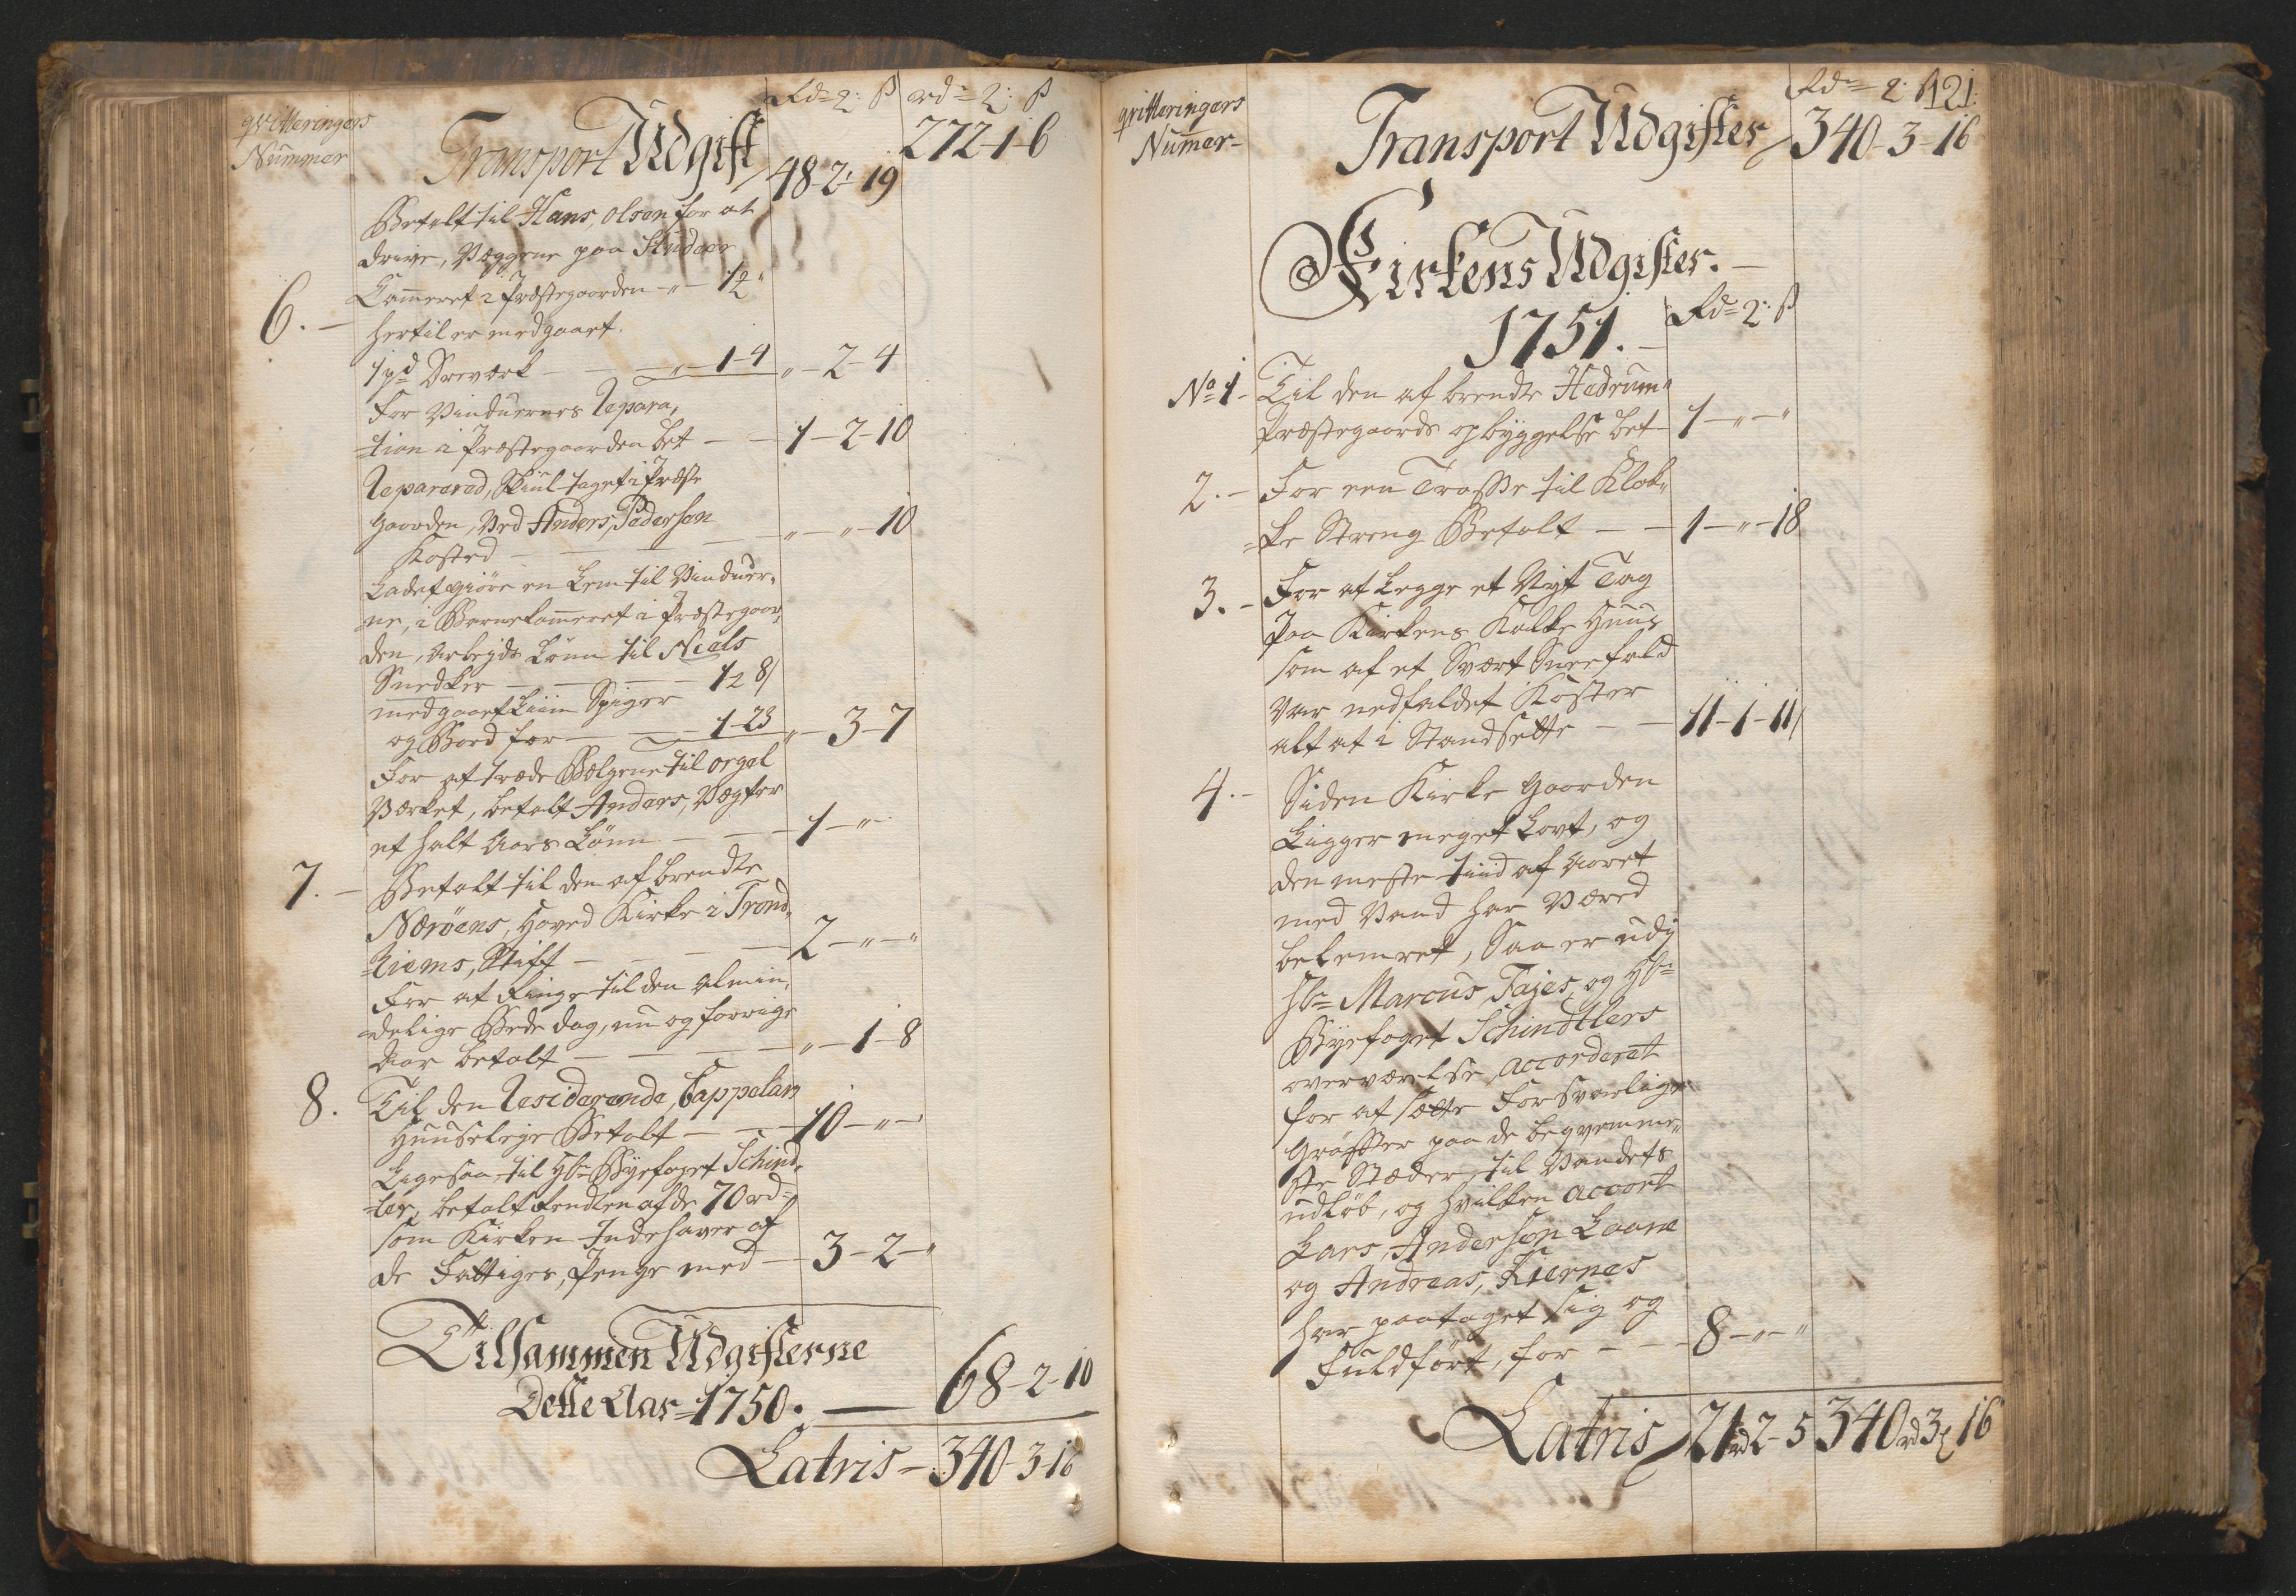 qvitteringers
Nummer
Rd= 2: ß rd= 2: ß
Transport Udgift 48-2-19 272-1-6
Betalt til Hans, olsen for at
drive, Væggene paa Studær
6. - Cameret i Præstegaarden -"- 12"
hertil er medgaaet.
1 pd Dreværk - - - "-1-4 "-2-4
For Vinduernes Repara,
-tion i Præstegaarden bet - - 1-2-10
Reparered, Skiul taget i Præste
gaarden, Ved Anders, Pedersen
Kosted - - - - - "-"-10
Ladet giöre en Lem til Vinduer-
-ne, i Barnekameret i Præstegaar,
den, Arbejds Lönn til Niels
Snedker - - - - 12 8/
medgaaet Liim Spiger
og Bord for - - - 1-23 "-3-7
For at træde Bælgene til orgel
Værket, betalt Anders, Vægter
et halt Aars Lönn - - - 1-"-
7. - Betalt til den af brendte
Næröens, Hoved Kirke i Trond,
-hiems, Stift - - - - 2-"-"
For at Ringe til den Almin,
-delige Bede dag, nu og forrige
Aar betalt - - - - "-1-8
8. Til den Residerende, Cappelan
Huuseleje Betalt - - 10-"-
Ligesaa til Hr= Byefoget Schind-
-ler, betalt Rendten af de 70 rd=
som Kirken Indehaver af
de Fattiges, Penge med - 3-2-"
Tilsammen Udgifterne
Dette Aar=1750. - 68-2-10
Latris - 340-3-16
qvitteringers
Numer-
Rd= 2: ß 121:
Transport Udgifter 340-3-16
Kirkens Udgifter.-
1751.- Rd= 2: ß
No 1- Til den af brendte Hedrum"
Præstegaards opbyggelse bet- 1-"-"
2.- For een Trosse til Klok"
=ke Streng Betalt - - 1-"-18
3.- For at Legge et Nyt Tag
Paa Kirkens Kalke Huus
som af et Svært Sneefald
Var nedfaldet Koster
alt at i Standsette - - 11-1-11/
4.- Siden Kirke Gaarden
Ligger meget Lavt, og
den meste tiid af Aaret
med Vand har Været
belemret, Saa er udj
Hr= Marcus Fajes, og Hr=
Byefoget Schindtlers
overværelse, accorderet
for at sætte Forsvarlige
Gröfter paa de beqvemme"
ste Stæder, til Vandets
udlöb, og hvilken accort
Lars, Andersen Laane
og Andreas, Kiernes
har paataget sig og
Fuldfört, for - - - 8-"-"
Latris 21rd 2-5 340rd 3 16